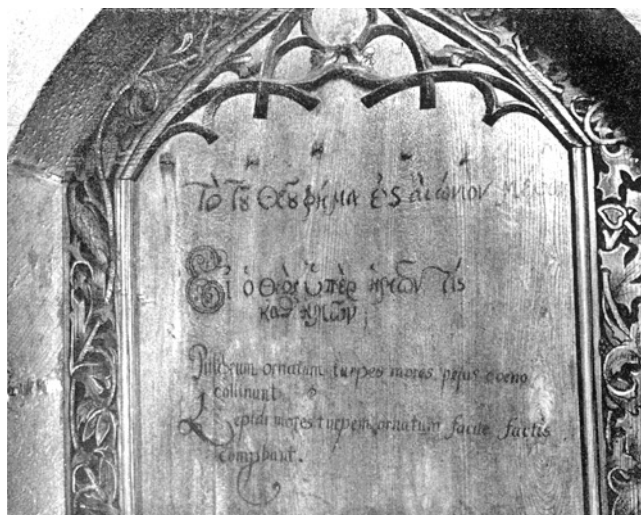 Τὸ τȣ Θεȣ ῥῆμα ἐς ἀιώνιον
Εἰ ὁ Θεὸς ὑπὲρ ἡμῶν τίς
καθ' ἡμῶν;
Pulchrum ornatum turpes mores pejus coeno
collinunt
Lepidi mores turpem ornatum facile factis
comprobant.